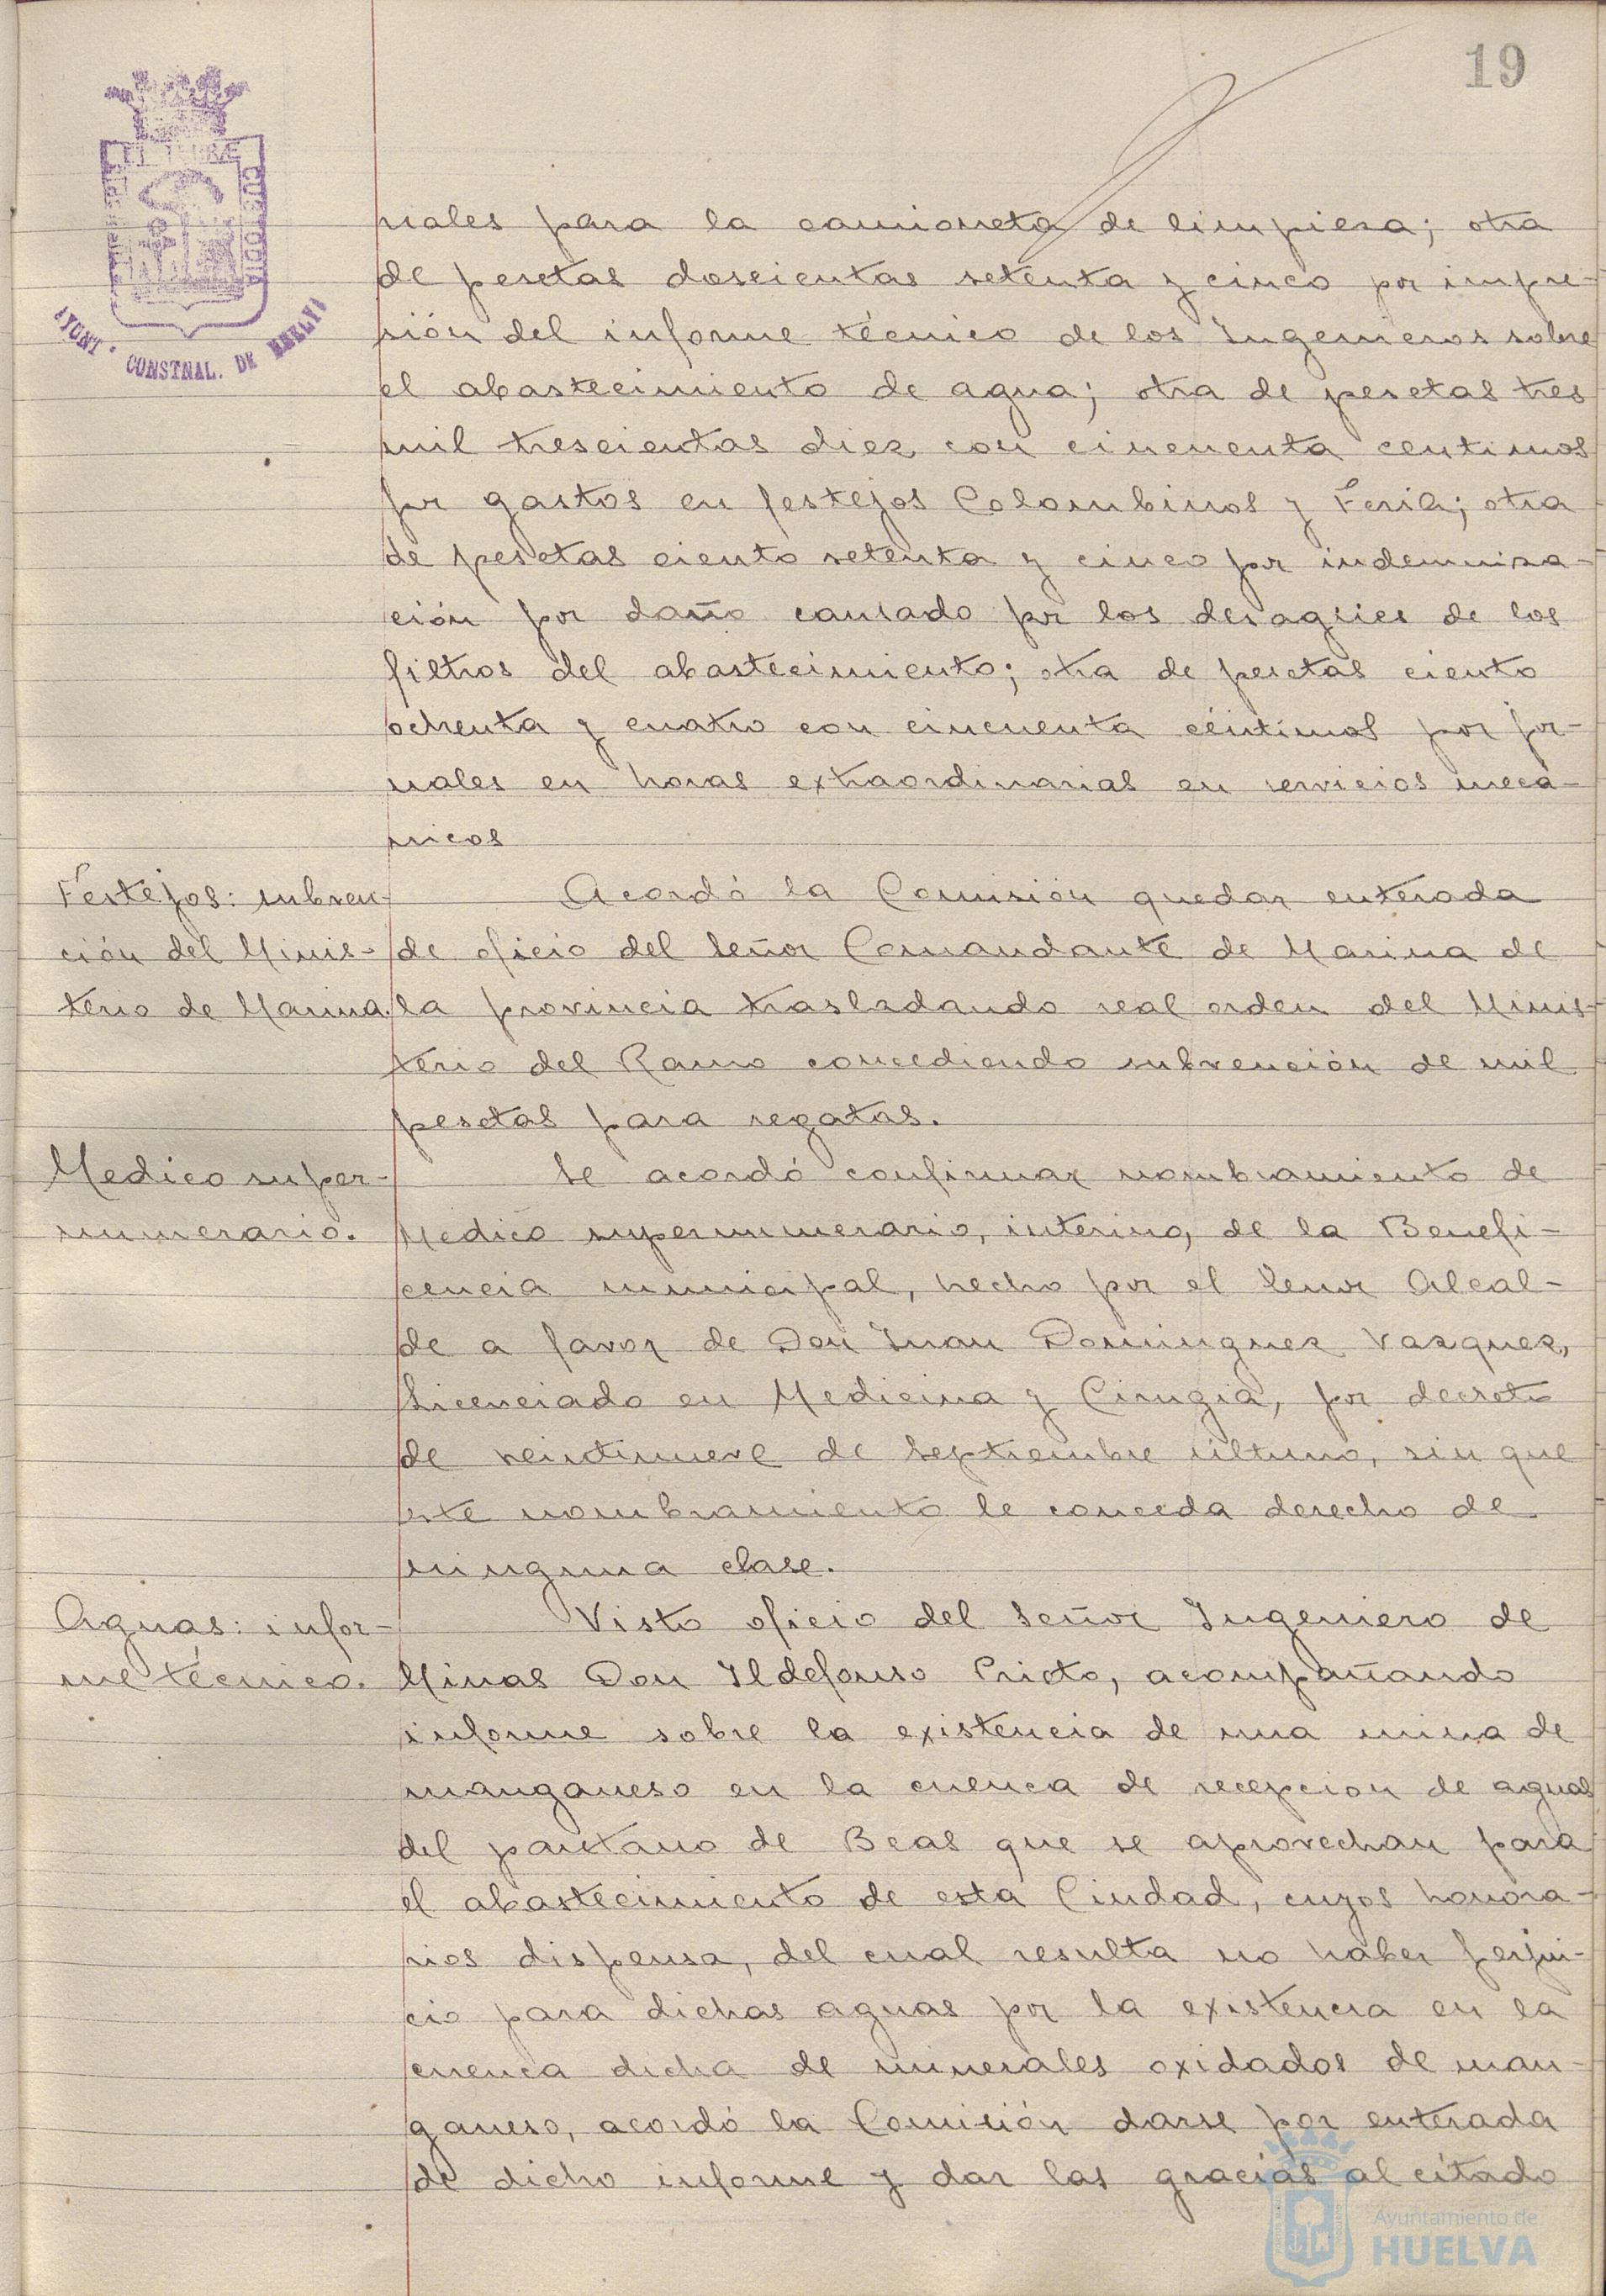 19
PORTUS MARIS
ET TERRÆ
CUSTODIA
AYUNT · CONSTNAL. DE HUELVA
nales para la camioneta de limpieza; otra
de pesetas doscientas setenta y cinco por impre-
sión del informe técnico de los Ingenieros sobre
el abastecimiento de agua; otra de pesetas tres
mil trescientas diez con cincuenta centimos
por gastos en festejos Colombinos y Feria; otra
de pesetas ciento setenta y cinco por indemniza-
ción por daño causado por los desagües de los
filtros del abastecimiento; otra de pesetas ciento
ochenta y cuatro con cincuenta céntimos por jor-
nales en horas extraordinarias en servicios mecá-
nicos
Festejos: subven-
ción del Minis-
terio de Marina.
Acordó la Comisión quedar enterada
de oficio del Señor Comandante de Marina de
la provincia trasladando real orden del Minis-
terio del Ramo concediendo subvención de mil
pesetas para regatas.
Medico super-
numerario.
Se acordó confirmar nombramiento de
Médico supernumerario, interino, de la Benefi-
cencia municipal, hecho por el Senor Alcal-
de a favor de Don Juan Dominguez Vazquez,
Licenciado en Medicina y Cirugia, por decreto
de veintinueve de Septiembre último, sin que
este nombramiento le conceda derecho de
ninguna clase.
Aguas: infor-
me técnico.
Visto oficio del Señor Ingeniero de
Minas Don Ildefonso Prieto, acompañando
informe sobre la existencia de una mina de
manganeso en la cuenca de recepcion de aguas
del pantano de Beas que se aprovechan para
el abastecimiento de esta Ciudad, cuyos honora-
rios dispensa, del cual resulta no haber perjui-
cio para dichas aguas por la existencia en la
cuenca dicha de minerales oxidados de man-
ganeso, acordó la Comisión darse por enterada
de dicho informe y dar las gracias al citado
Ayuntamiento de
HUELVA